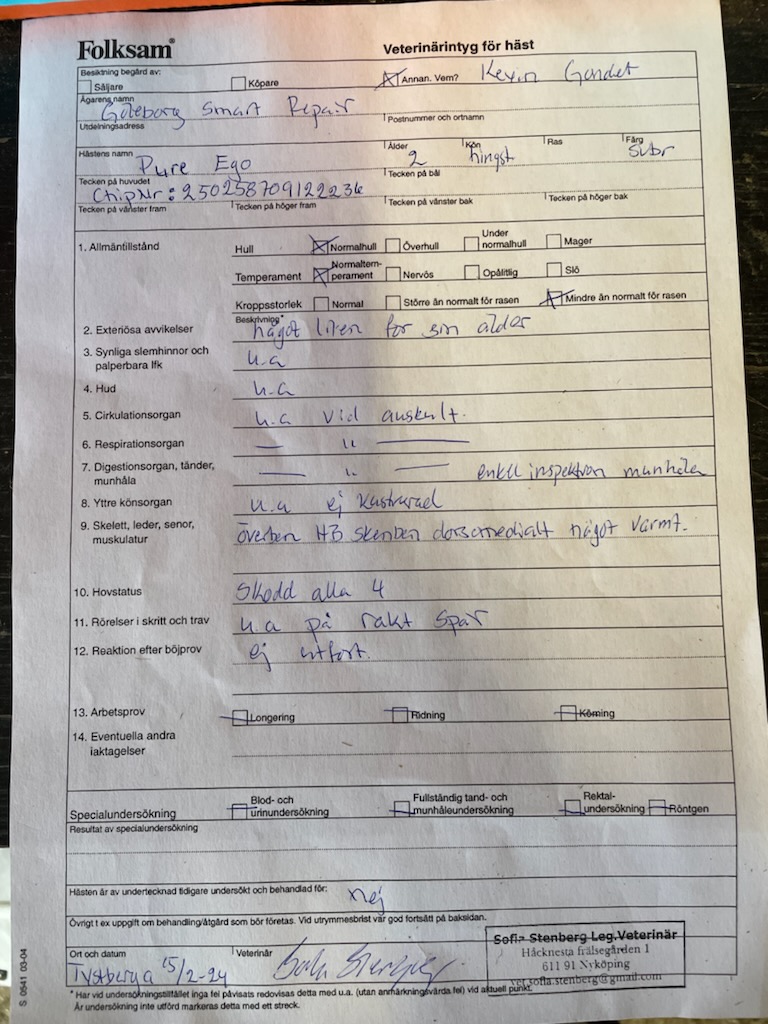 Folksam®
Veterinärintyg för häst
Besiktning begärd av:
Säljare Köpare Annan. Vem? Kevin Gondet
Ägarens namn
Göteborg Smart Repair
Utdelningsadress Postnummer och ortnamn
Hästens namn Ålder Kön Ras Färg
Pure Ego 2 hingst svbr
Tecken på huvudet Tecken på bål
ChipNr: 250258709122236
Tecken på vänster fram Tecken på höger fram Tecken på vänster bak Tecken på höger bak
1. Allmäntillstånd Hull Normalhull Överhull Under normalhull Mager
Temperament Normaltem-perament Nervös Opålitlig Slö
Kroppsstorlek Normal Större än normalt för rasen Mindre än normalt för rasen
2. Exteriösa avvikelser Beskrivning* något liten för sin ålder
3. Synliga slemhinnor och
palperbara lfk u.a
4. Hud u.a
5. Cirkulationsorgan u.a vid auskult.
6. Respirationsorgan — " —
7. Digestionsorgan, tänder,
munhåla — " — enkel inspektion munhåla
8. Yttre könsorgan u.a ej kastrerad
9. Skelett, leder, senor,
muskulatur överben HB skenben dorsomedialt något varmt.
10. Hovstatus Skodd alla 4
11. Rörelser i skritt och trav u.a på rakt spår
12. Reaktion efter böjprov ej utfört.
13. Arbetsprov Longering Ridning Körning
14. Eventuella andra
iaktagelser
Specialundersökning Blod- och urinundersökning Fullständig tand- och munhåleundersökning Rektal-undersökning Röntgen
Resultat av specialundersökning
Hästen är av undertecknad tidigare undersökt och behandlad för: nej
Övrigt t ex uppgift om behandling/åtgärd som bör företas. Vid utrymmesbrist var god fortsätt på baksidan.
Ort och datum Veterinär
Tystberga 15/2-24 Sofia Stenberg
Sofia Stenberg Leg.Veterinär
Håcknesta frälsegården 1
611 91 Nyköping
vet.sofia.stenberg@gmail.com
* Har vid undersökningstillfället inga fel påvisats redovisas detta med u.a. (utan anmärkningsvärda fel) vid aktuell punkt.
Är undersökning inte utförd markeras detta med ett streck.
S 0541 03-04